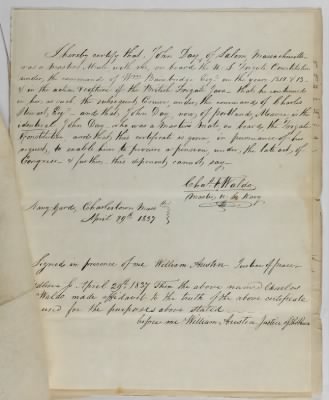 I hereby certify that, John Day, of Salem, Massachusetts
was a Masters Mate with me, on board the U. S. Frigate Constitution
under, the command of Wm Bainbridge Esqr in the years 1812 & 13.
& in the action & capture of the British Frigate Java that he continued
in her, as such the subsequent Cruise under, the command of Charles
Stewart, Esqr and that, John Day, now, of Portland, Maine is the
identical John Day, who was a Masters Mate, on board, the Frigate
Constitution and that, this certificate is given in pursuance of his
request, to enable him to procure a pension under, the late act, of
Congress & further this deponent, cannot, say
Chas F Waldo
Master U. S. Navy
Navy Yard, Charlestown Mass
April 29th 1837
Signed in presence of me William Austin Justice of peace
April 29th 1837 Then the above named Charles
Waldo made affidavit to the truth of the above certificate
used for the purposes above stated
before me William Austin Justice of the Peace